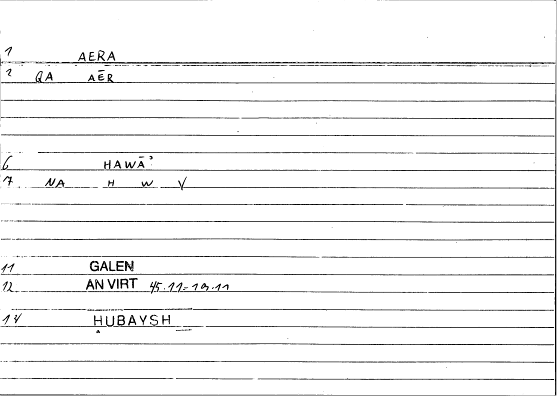 1 AERA
2 QA AĒR
6 HAWĀʾ
7 NA H W V
11 GALEN
12 AN VIRT
14 ḤUBAYSH